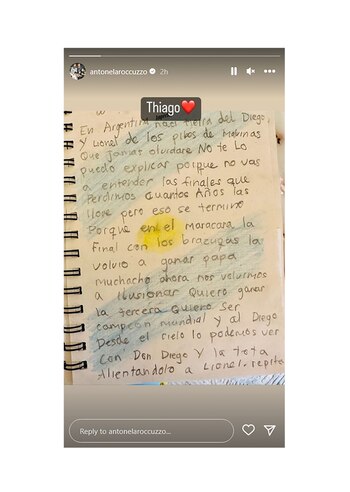 antonelaroccuzzo 2h
Thiago❤️
En Argentina naci tierra del Diego
Y Lionel de los pibes de Malvinas
Que jamas olvidare No te Lo
puedo explicar porque no vas
a entender las finales que
Perdimos cuantos Años las
llore pero eso se termino
Porque en el maracana la
final con los brazucas la
volvio a ganar papa
muchacho ahora nos volvimos
a ilusionar Quiero ganar
la tercera Quiero Ser
campeon mundial y al Diego
Desde el cielo lo podemos ver
con Don Diego Y la tota
Alientandolo a Lionel. repita
Reply to antonelaroccuzzo...